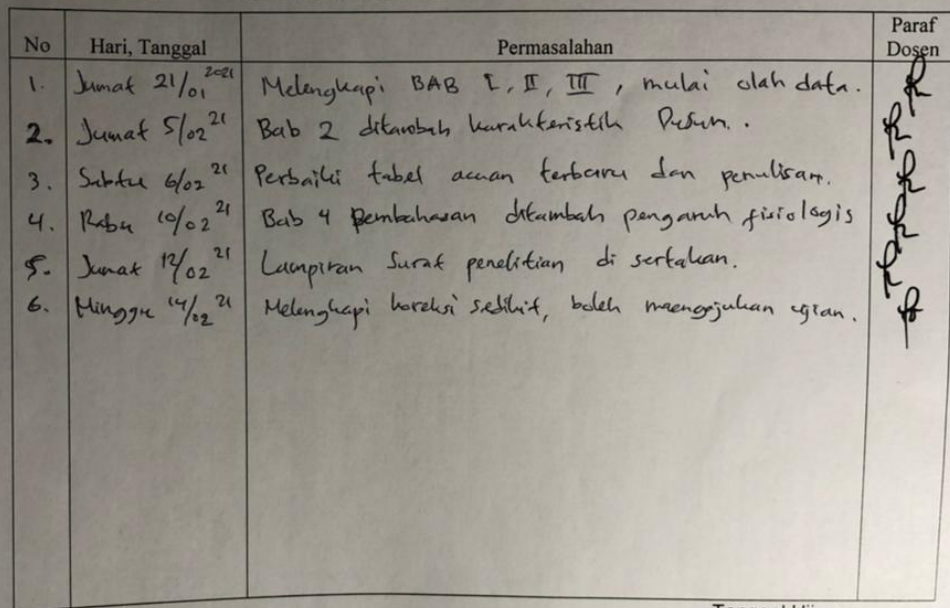 No Hari, Tanggal Permasalahan Paraf Dosen
1. Jumat 21/01 2021 Melengkapi BAB I, II, III, mulai olah data.
2. Jumat 5/02 21 Bab 2 ditambah karakteristik Dusun.
3. Sabtu 6/02 21 Perbaiki tabel acuan terbaru dan penulisan.
4. Rabu 10/02 21 Bab 4 Pembahasan ditambah pengaruh fisiologis
5. Jumat 12/02 21 Lampiran Surat penelitian di sertakan.
6. Minggu 14/02 21 Melengkapi koreksi sedikit, boleh maengajukan ujian.